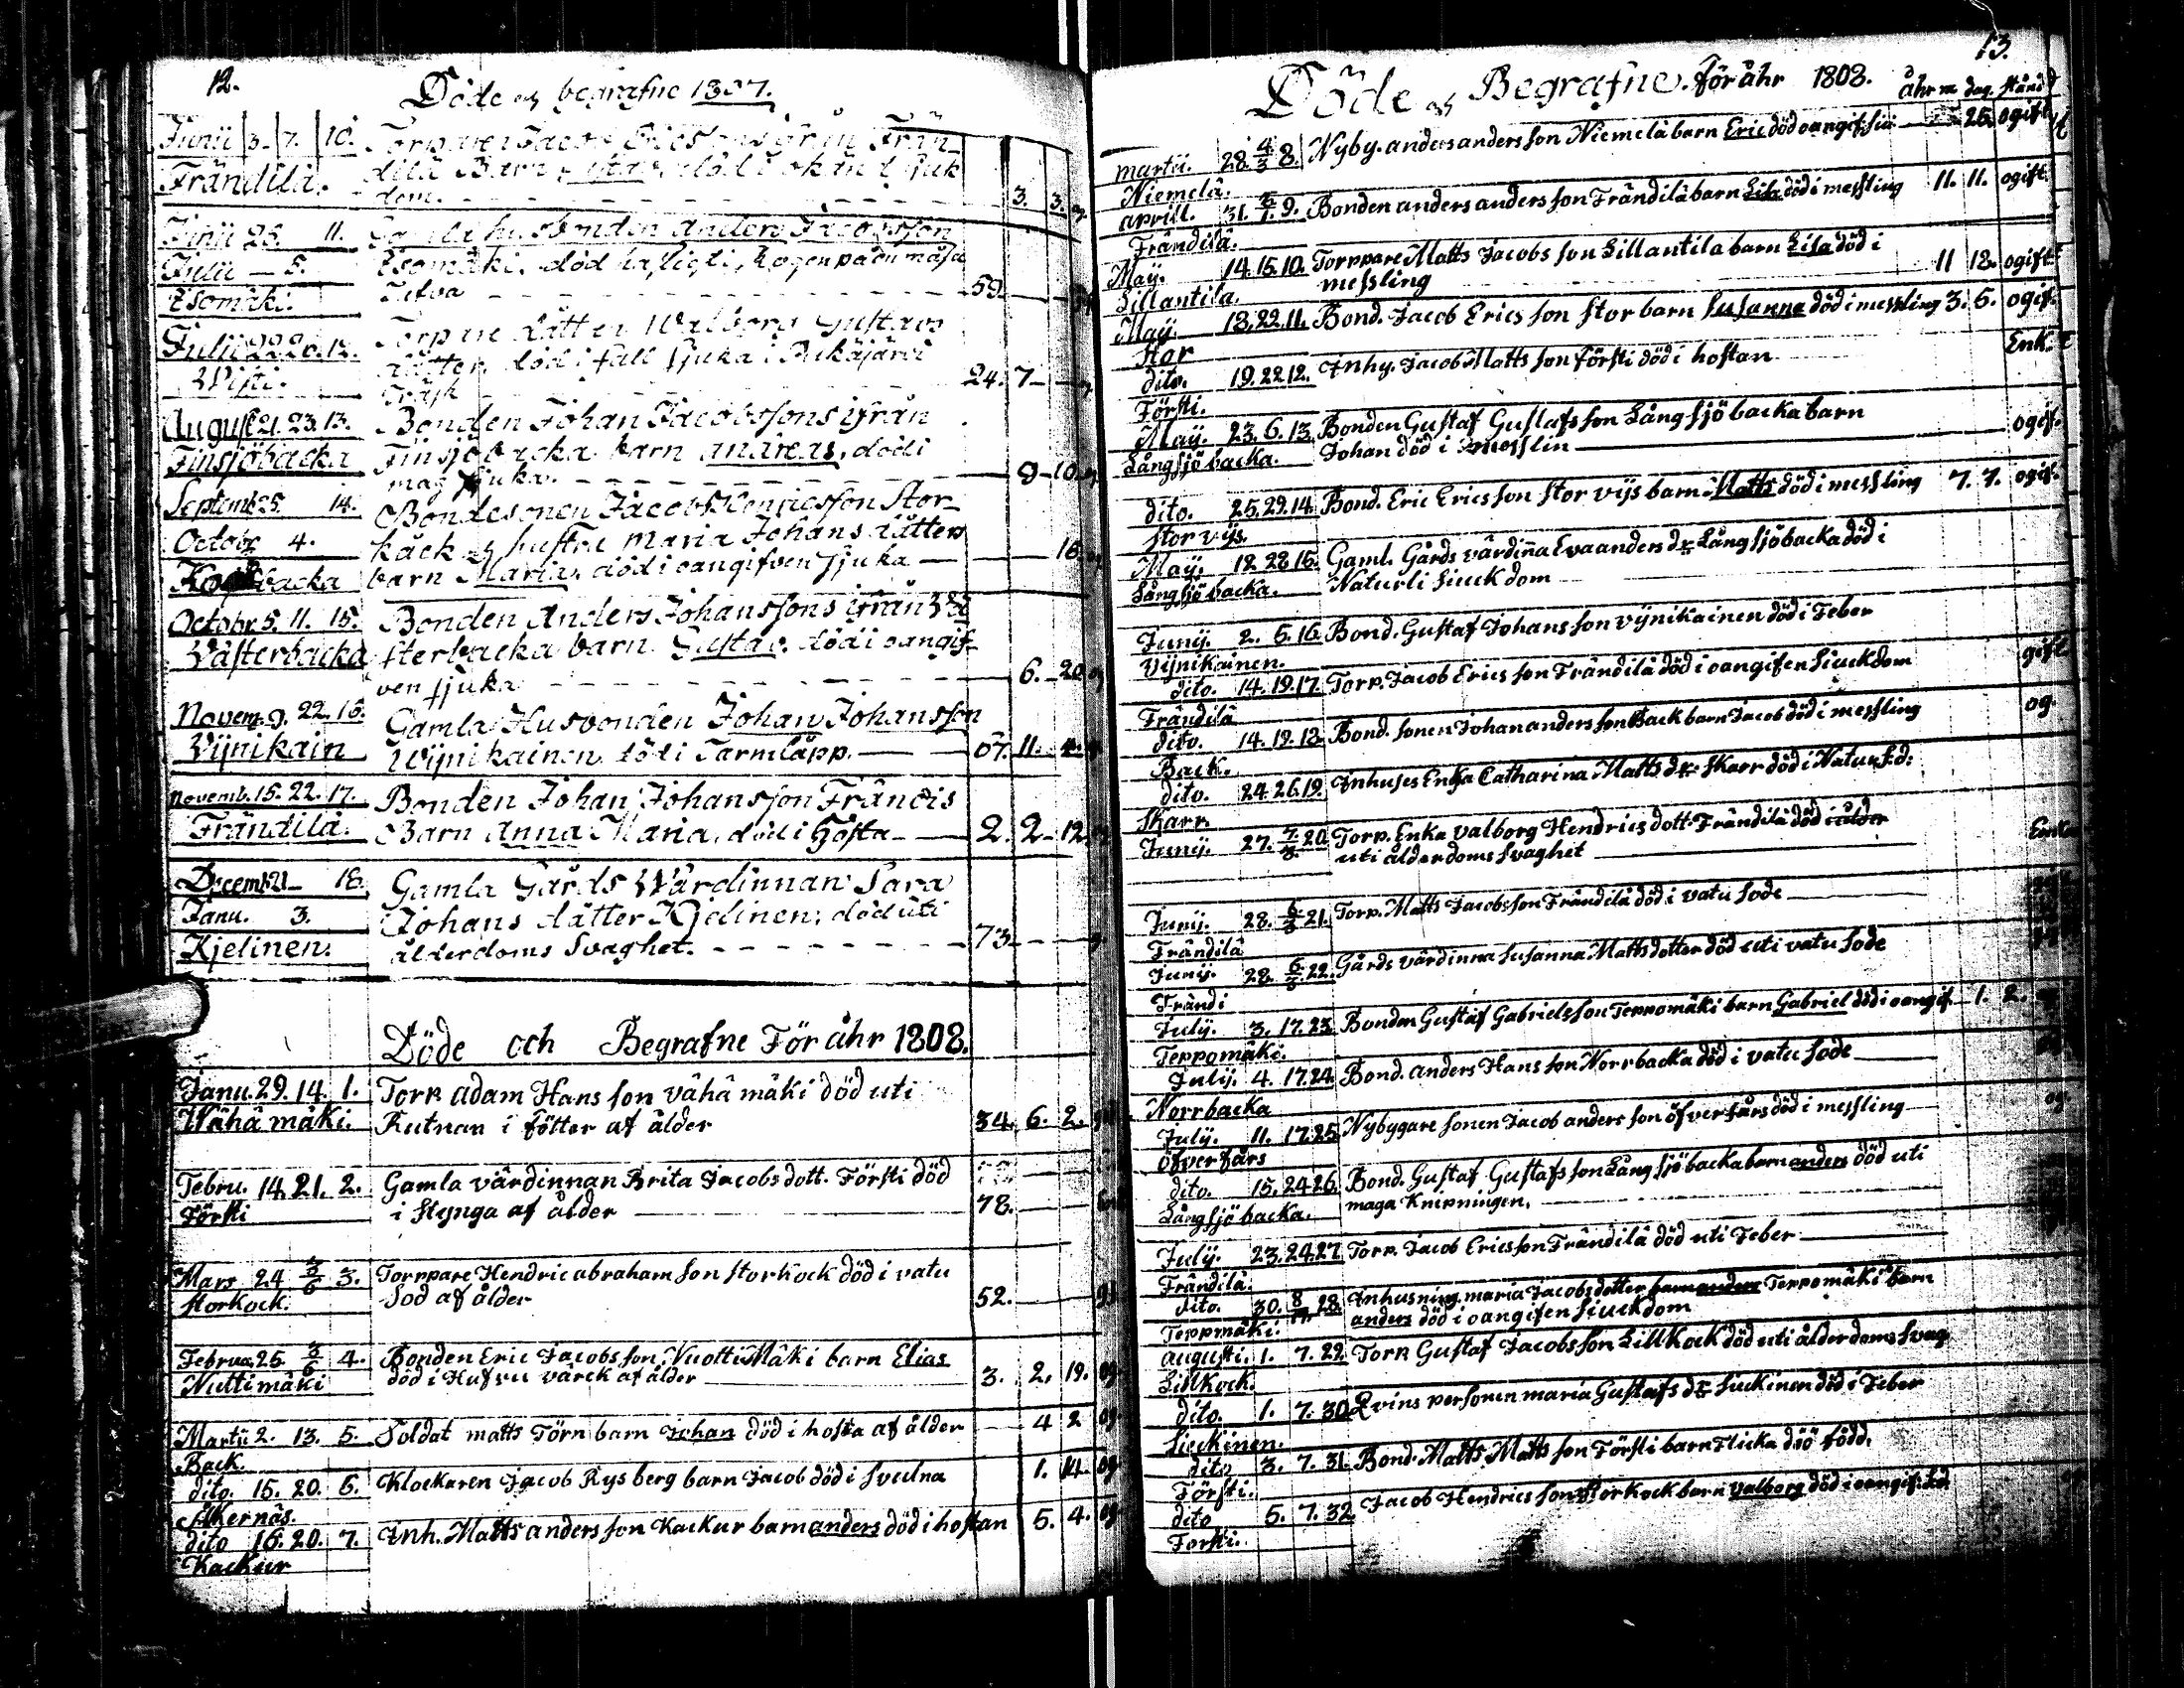 12.
Döde och begrafne 1807.
Junii 3. 7. 10. Torparen Jacob Ericssons ifrån Frän-
Frändilä. dilä Barn död i okänd sjuk
dom. 3. 3.
Junii 26. 11. Gamla husbonden Anders Jacobsson
Julii 5. Esomäki, död hastigt,
Esomäki. 59.
Julii 20. 12. Torpare dätter Walborg Gustavs
dätter, död i fall sjuka i
Wisti. Träsk 24. 7
August 21. 23. 13. Bonden Johan Jacobssons ifrån
Finsjöbacka Finsjöbacka barn andreas, död i
mag sjuka. 9 10
Septemb 25. 14. Bondesonen Jacob Henricsson Stor-
Octobr 4. kåck och hustru Maria Johans dätters
backa barn Maria, död i oangifven sjuka 16
Octobr. 5. 11. 15. Bonden Anders Johanssons ifrån Wä
Västerbacka sterbacka barn Gustav, död i oangif-
ven sjuka 6. 20
Novem. 9. 22. 16. Gamla Husbonden Johan Johansson
Vijnikain Wijnikainen död i Tarmläpp. 67. 11.
Novemb. 15. 22. 17. Bonden Johan Johansson Frändis
Frändilä. Barn Anna Maria, död i Hosta 2. 2 12
Decemb 21 18. Gamla Gårds Wärdinnan Sara
Janu. 3. Johans dätter Kjelinen, död uti
Kjelinen. ålderdoms Svaghet. 73
Döde och Begrafne För åhr 1808.
Janu. 29. 14. 1. Torp adam Hans son vähä mäki död uti
Wähä mäki. Rutnan i fötter af ålder 34. 6. 2.
Febru. 14. 21. 2. Gamla värdinnan Brita Jacobs dott. Försti död
Försti i Stynga af ålder 78.
Mars 24 3/6 3. Torppare Hendric abraham son storkock död i vatu
storkock. Sod af ålder 52.
Februa 25 3/6 4. Bonden Eric Jacobs son Nuotti Mäki barn Elias
Nuttimäki död i Hufvu värck af ålder 3. 2. 19. og
Martii 2. 13. 5. Soldat matts Törn barn Johan död i hosta af ålder 4 2 og.
Back.
dito. 15. 20. 6. Klockaren Jacob Rysberg barn Jacob död i Svulna 1. 14. og
Åkernäs.
dito 16. 20. 7. Inh. Matts anders son Kackur barn anders död i hostan 5. 4. og
Kackur
13.
Döde och Begrafne. för åhr 1808. åhr m dag. stånd
martii. 28. 4/3 8. Nyby. anders anders son Niemelä barn Eric död oangif. siu 25. ogift
Niemelä.
aprill. 31. 9. Bonden anders anders son Frändilä barn Lisa död i messling 11. 11. ogift.
Frändilä.
Maij. 14. 15. 10. Torppare Matts Jacobs son Lillantila barn Lisa död i
Lillantila. messling 11 18. ogift
Maij. 18. 22. 11. Bond. Jacob Erics son stor barn susanna död i messling 3. 5. ogif.
stor
dito. 19. 22 12. Inhy. Jacob Matts son försti död i hostan Enk.
Försti.
Maij. 23. 6. 13. Bonden Gustaf Gustafs son Långsjöbacka barn
Långsjöbacka. Johan död i messlin ogif.
dito. 25. 29. 14. Bond. Eric Erics son stor vijs barn Matts död i messling 7. 7. ogif.
stor vijs.
Maij. 18. 28 15. Gaml. Gårds värdinna Eva anders dr Långsjöbacka död i
Långsjöbacka. Naturli Siuckdom
Junij. 2. 6. 16. Bond. Gustaf Johans son vijnikainen död i Feber
Vijnikainen. gift
dito. 14. 19. 17. Torp. Jacob Erics son Frändilä död i oangifen Siuckdom
Frändilä
dito. 14. 19. 18. Bond. sonen Johan anders son Back barn Jacob död i messling og.
Back.
dito. 24. 26. 19. Inhuses Enka Catharina Matts dr skarr död i Natur. s. d:
Skarr.
Junij. 27. 7/3 20. Torp. Enka valborg Hendrics dott. Frändilä död i ålder
uti ålderdoms svaghet Enka
Junij. 28. 6/3 21. Torp. Matts Jacobs son Frändilä död i vatu sode
Frändilä
Junij. 28. 6/3 22. Gårds värdinna susanna Matts dotter död uti vatu sode
Frändi
Julij. 3. 17. 23. Bonden Gustaf Gabriels son Teppomäki barn Gabriel död i oangif. 1. 2.
Teppomäki.
Julij. 4. 17. 24. Bond. anders Hans son Norrbacka död i vatu sode
Norrbacka
Julij. 11. 17. 25. Nybygare sonen Jacob anders son öfverfårs död i messling og.
öfverfårs
dito. 15. 24 26. Bond. Gustaf Gustafs son Långsjöbacka barn anders död uti
Långsjöbacka. maga Knipningen.
Julij. 23. 24. 27. Torp. Jacob Erics son Frändilä död uti Feber
Frändilä.
dito. 30. 28. Inhusning maria Jacobs dotter barn anders Teppomäki barn
Teppmäki. anders död i oangifen Siuckdom
augusti. 1. 7. 29. Torp. Gustaf Jacobs son Lillkock död uti ålderdoms svag
Lillkock.
dito. 1. 7. 30. Qvins personen maria Gustafs dr siuckinen död i Feber
Siuckinen.
dito 3. 7. 31. Bond. Matts Matts son Försti barn Flicka döö född.
Försti.
dito 5. 7. 32. Jacob Hendrics son storkock barn valborg död i oangif.
Forsti.